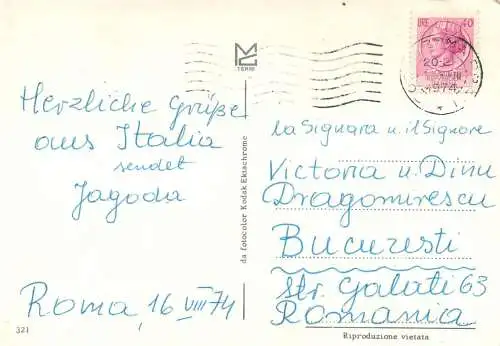 Herzliche Grüße
aus Italia
sendet
Jagoda
Roma, 16 VIII 74
321
TERNI
da fotocolor Kodak Ektachrome
LIRE 40
1974
la Signara u. il Signore
Victoria u. Dinu
Dragomirescu
Bucuresti
str. Galati 63
Romania
Riproduzione vietata